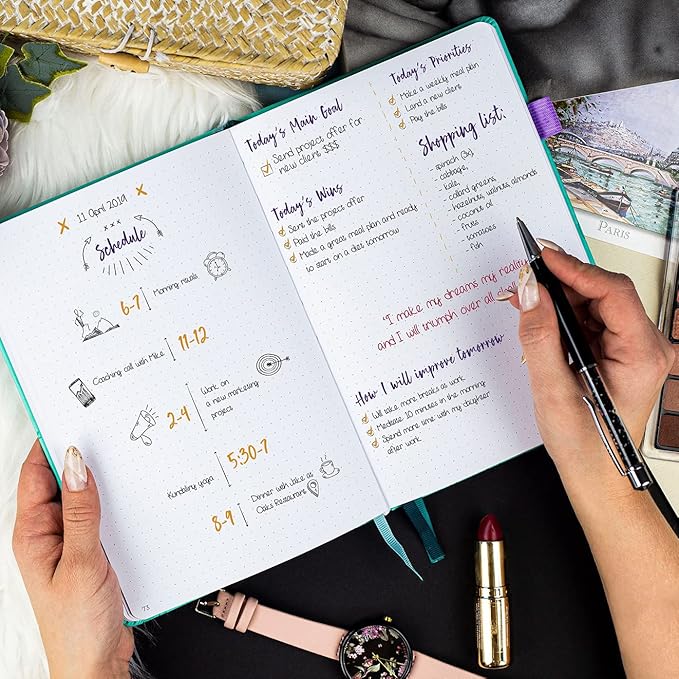 11 April 2019
x x x
Schedule
6-7 Morning rituals
Coaching call with Mike 11-12
2-4 Work on
a new marketing
project
Kundaliny yoga 5:30-7
8-9 Dinner with Jake at
Oaks Restaurant
73
Today's Main Goal
Send project offer for
new client $$$
Today's Wins
Sent the project offer
Paid the bills
Made a great meal plan and ready
to start on a diet tomorrow
Today's Priorities
Make a weekly meal plan
Land a new client
Pay the bills
Shopping list:
- spinach (3x),
- cabbage,
- kale,
- collard greens,
- hazelnuts, walnuts, almonds
- coconut oil
- fruits
- tomatoes
- fish
"I make my dreams my reality
and I will triumph over all
How I will improve tomorrow
Will take more breaks at work
Meditate 20 minutes in the morning
Spend more time with my daughter
after work
PARIS